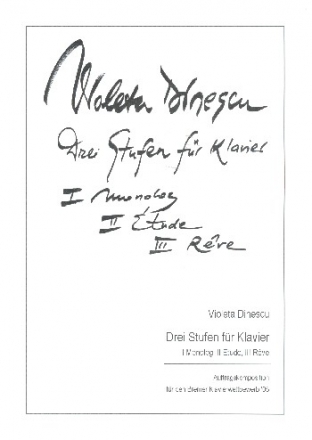 Violeta Dinescu
Drei Stufen für Klavier
I Monolog
II Étude
III Rêve
Violeta Dinescu
Drei Stufen für Klavier
I Monolog, II Etude, III Rêve
Auftragskomposition
für den Bremer Klavierwettbewerb '95